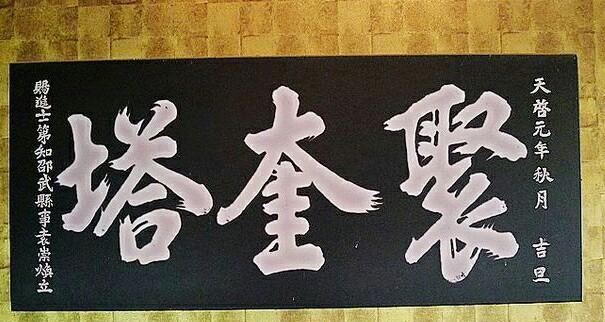 天啓元年秋月 吉旦
聚奎塔
賜進士第知邵武縣事袁崇煥立